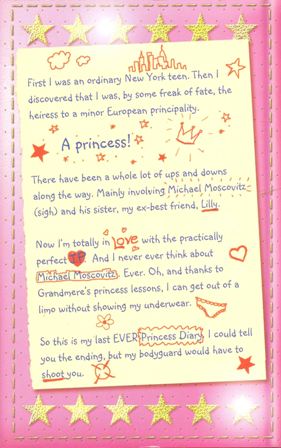 First I was an ordinary New York teen. Then I
discovered that I was, by some freak of fate, the
heiress to a minor European principality.
A princess!
There have been a whole lot of ups and downs
along the way. Mainly involving Michael Moscovitz
(sigh) and his sister, my ex-best friend, Lilly.
Now I'm totally in love with the practically
perfect JP. And I never ever think about
Michael Moscovitz. Ever. Oh, and thanks to
Grandmere's princess lessons, I can get out of a
limo without showing my underwear.
So this is my last EVER Princess Diary. I could tell
you the ending, but my bodyguard would have to
shoot you.